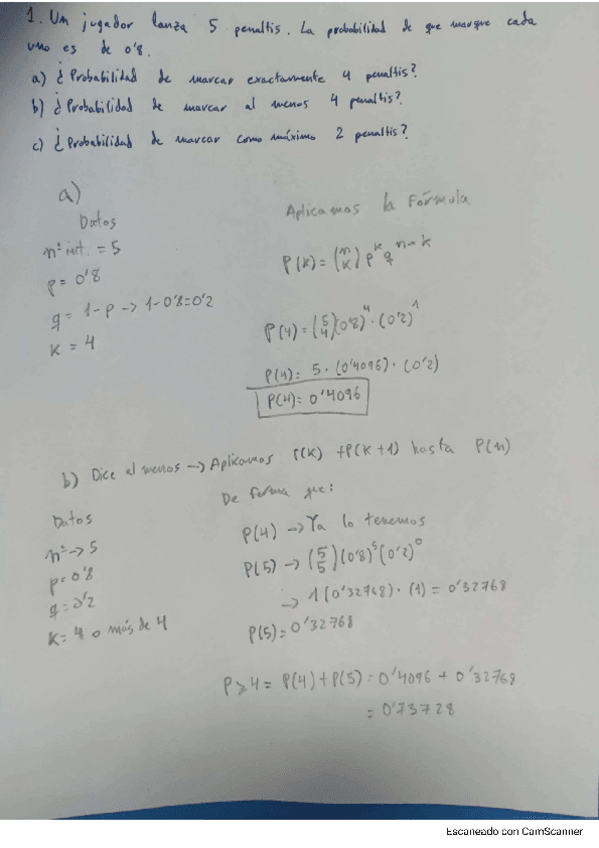 1. Un jugador lanza 5 penaltis. La probabilidad de que marque cada
uno es de 0'8.
a) ¿Probabilidad de marcar exactamente 4 penaltis?
b) ¿Probabilidad de marcar al menos 4 penaltis?
c) ¿Probabilidad de marcar como máximo 2 penaltis?
a)
Datos
nº int. = 5
p = 0'8
q = 1-p -> 1-0'8=0'2
k = 4
Aplicamos la Fórmula
P(k) = (n k) p^k q^n-k
P(4) = (5 4) (0'8)^4 · (0'2)^1
P(4) = 5 · (0'4096) · (0'2)
P(4) = 0'4096
b) Dice al menos -> Aplicamos P(k) + P(k+1) hasta P(n)
Datos
nº -> 5
p = 0'8
q = 0'2
k = 4 o más de 4
De forma que:
P(4) -> Ya lo tenemos
P(5) -> (5 5) (0'8)^5 (0'2)^0
-> 1 (0'32768) · (1) = 0'32768
P(5) = 0'32768
P≥4 = P(4) + P(5) = 0'4096 + 0'32768
= 0'73728
Escaneado con CamScanner